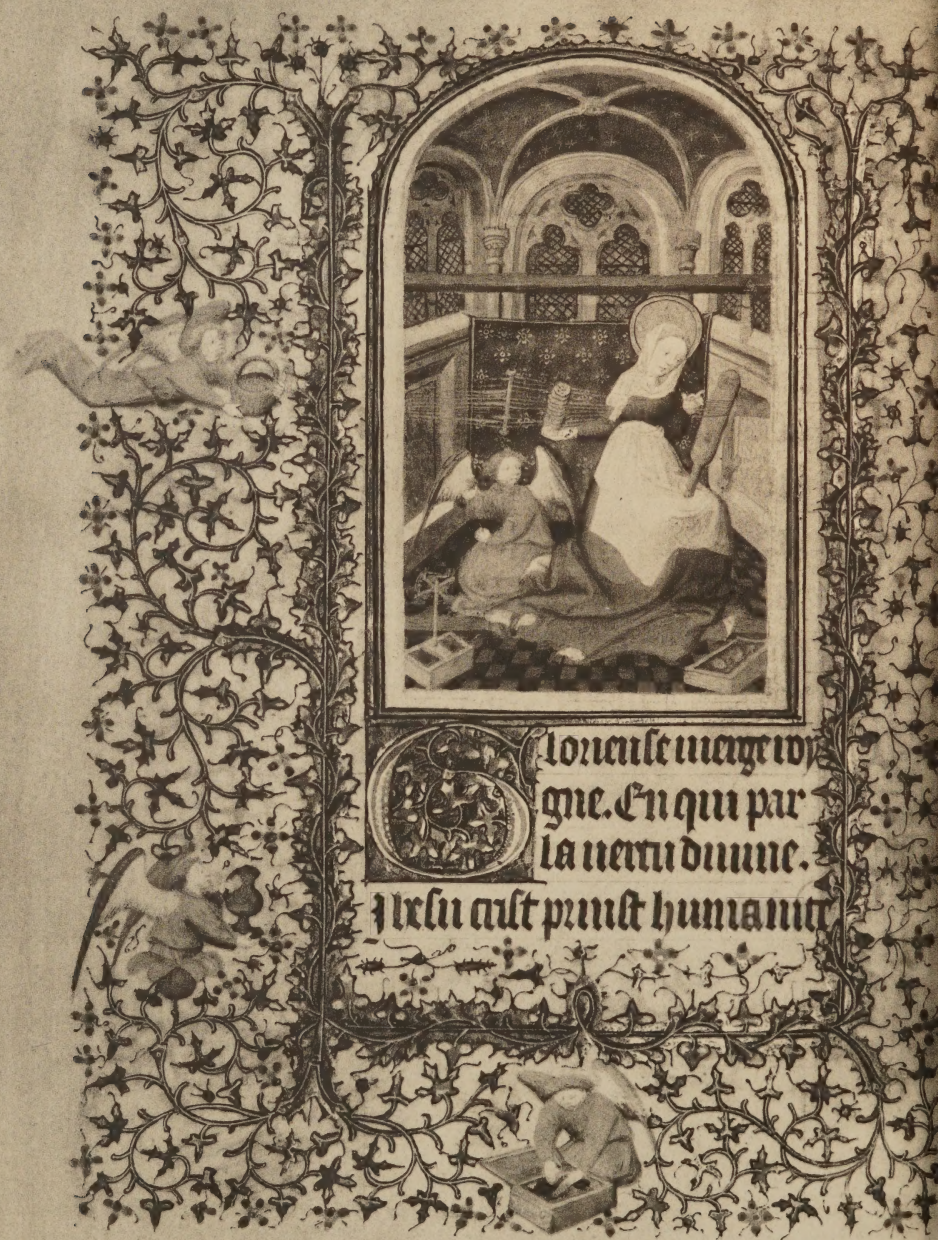 Glorieuse uierge roy
gne. En qui par
la uertu diuine.
Ihesu crist prinst humanite